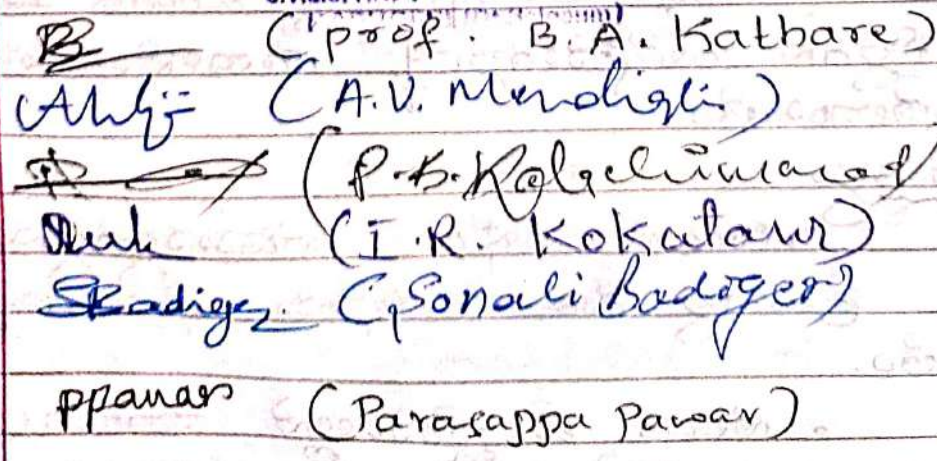 (prof. B. A. Kathare)
(A.V. Mendigeli)
(P.B. Kalachimarad
(I.R. Kokatanur)
SBadiger (Sonali Badiger)
ppawar (Parasappa Pawar)